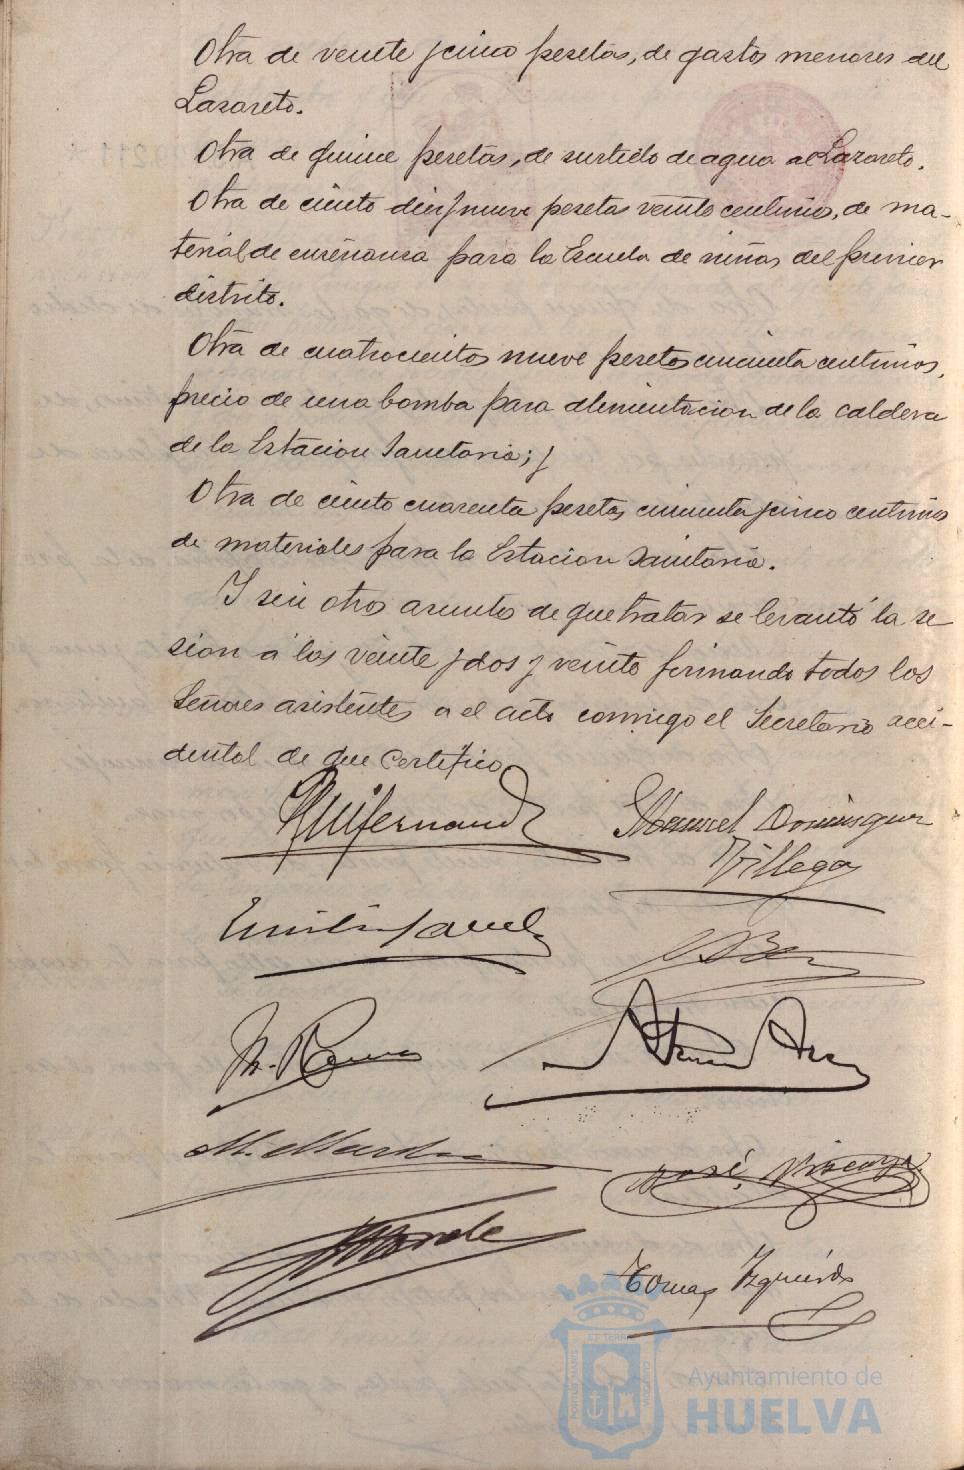 Otra de veinte y cinco pesetas, de gastos menores del
Lazareto.
Otra de quince pesetas, de surtido de agua al Lazareto.
Otra de ciento diez y nueve pesetas veinte centimos, de ma-
terial de enseñanza para la Escuela de niñas del primer
distrito.
Otra de cuatrocientos nueve pesetas cincuenta centimos,
precio de una bomba para alimentacion de la caldera
de la Estacion Sanitaria; y
Otra de ciento cuarenta pesetas cincuenta y cinco centimos
de materiales para la Estacion Sanitaria.
Y sin otro asunto de que tratar se levantó la se
sion á las veinte y dos y veinte firmando todos los
Señores asistentes a el acto conmigo el Secretario acci-
dental de que certifico
Manuel Dominguez
Villega
M. Martin
José
Tomas Izquierdo
Ayuntamiento de
HUELVA